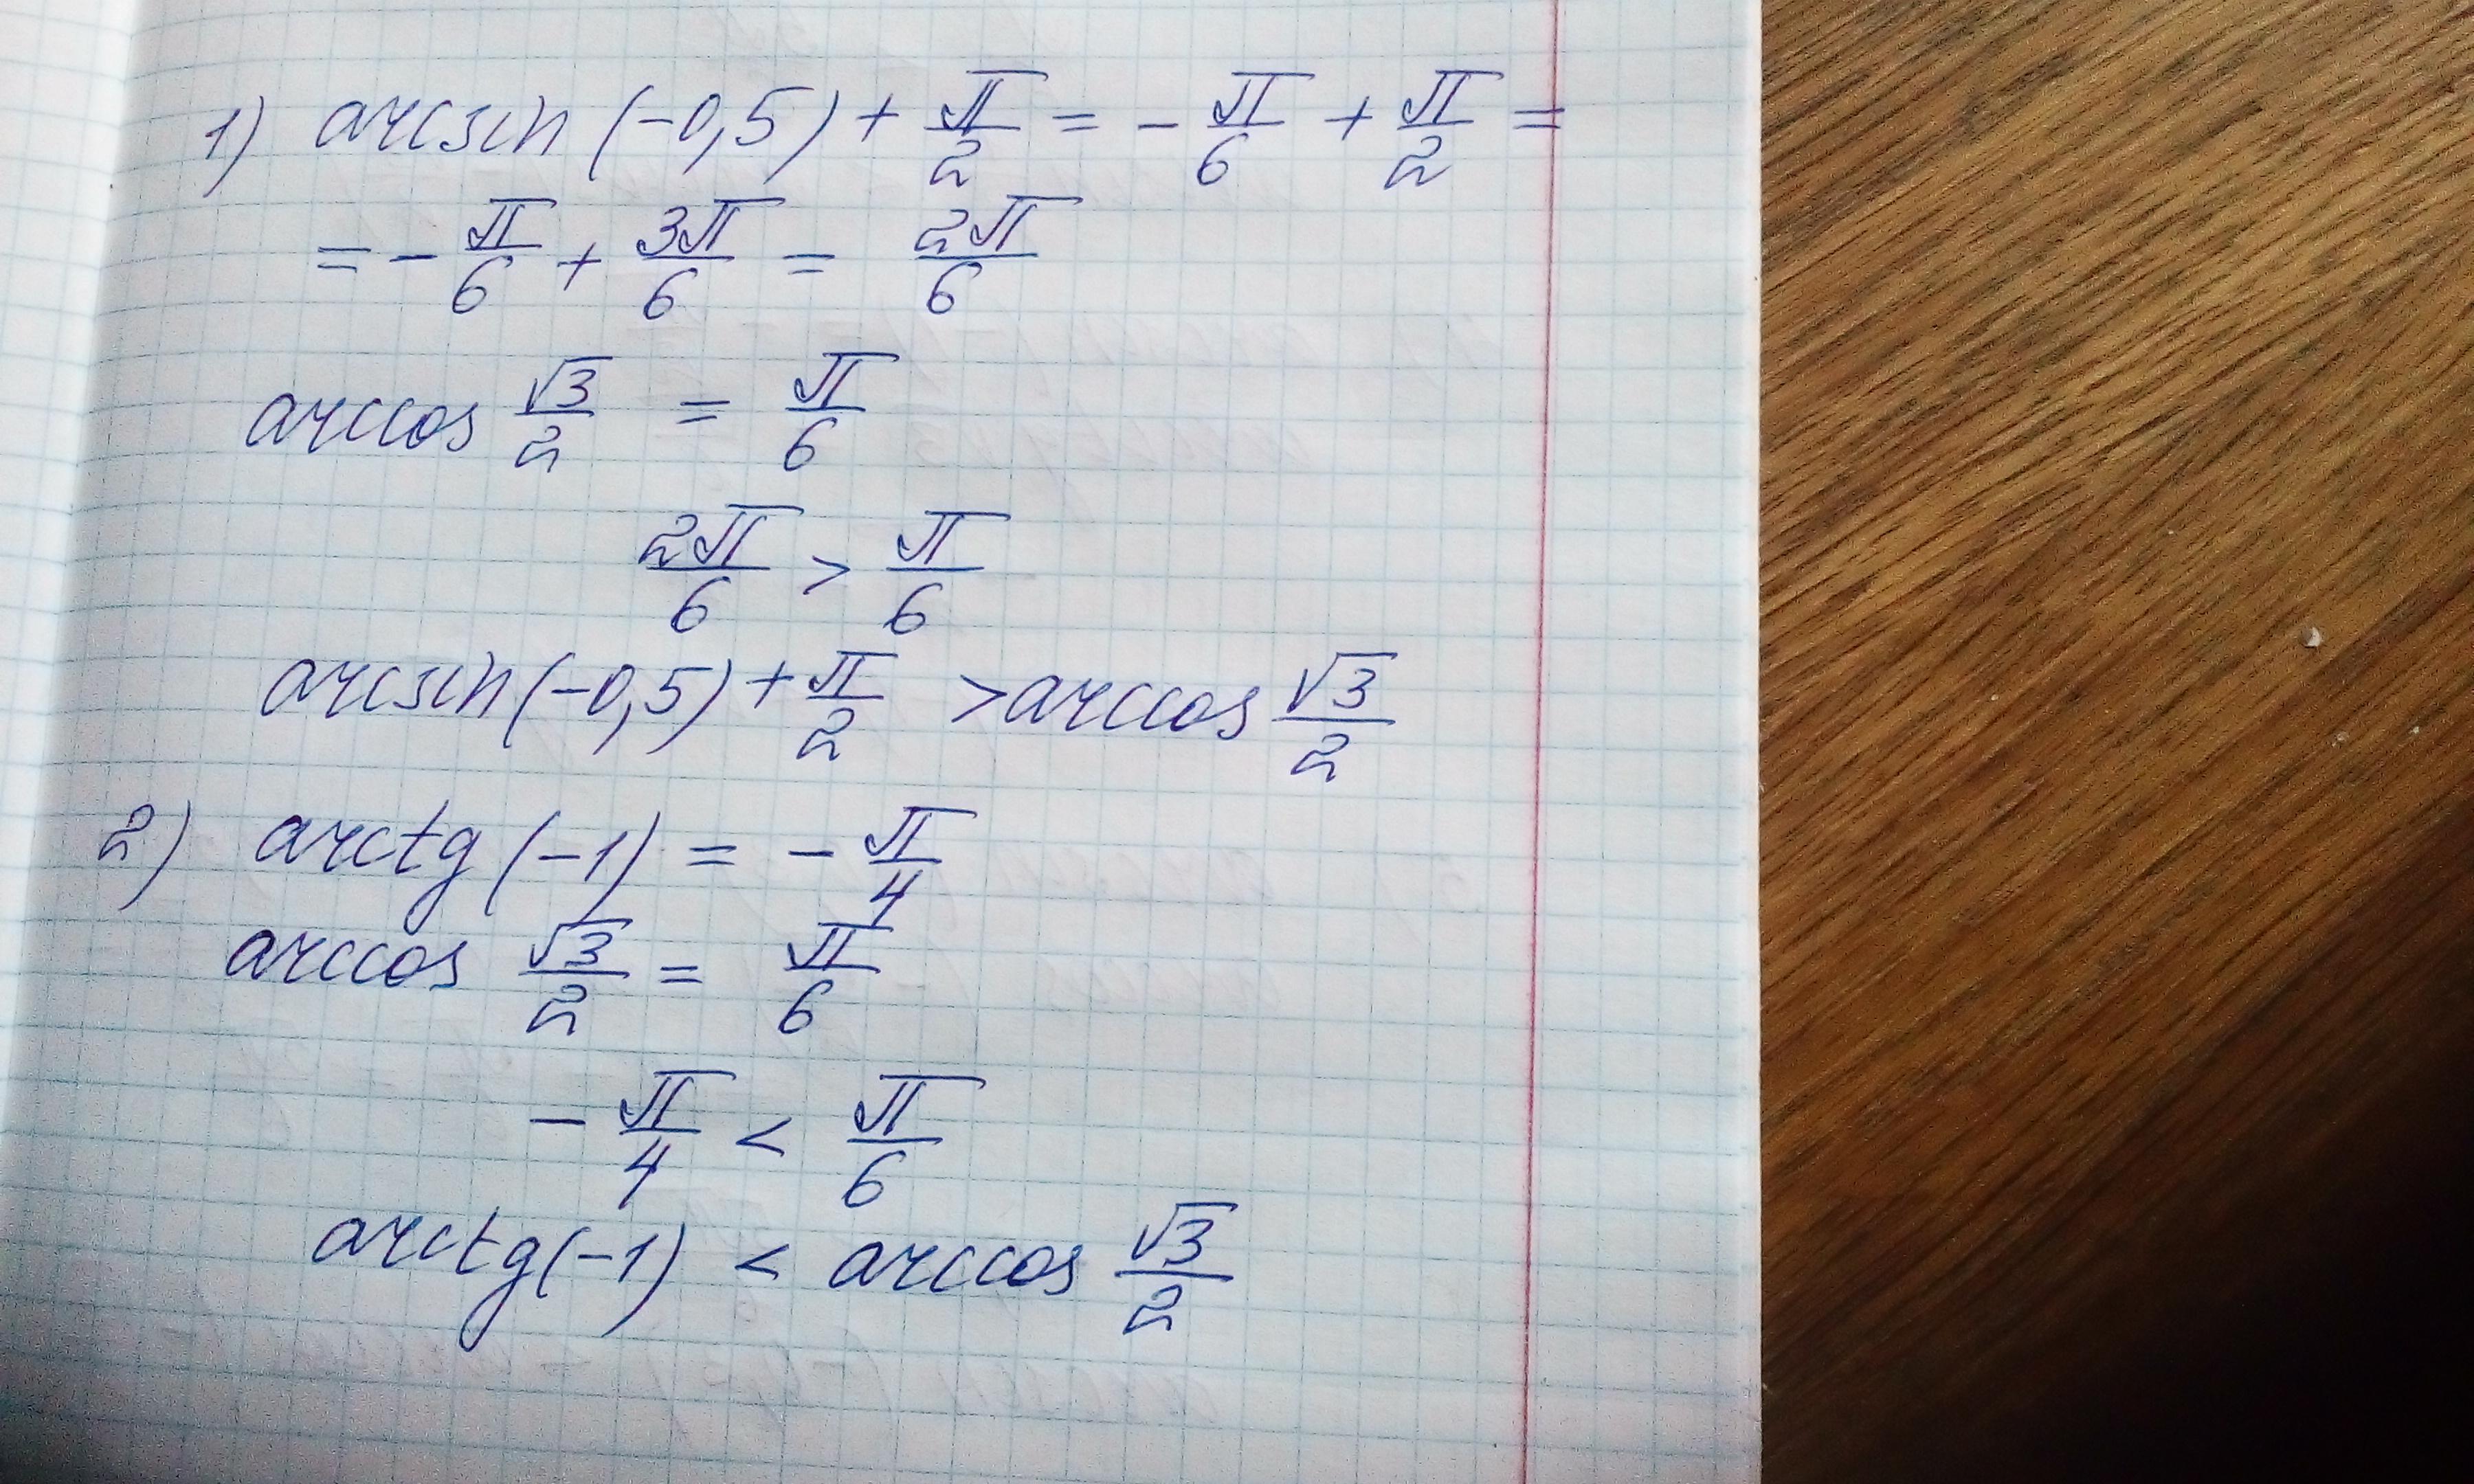 1) arcsin (-0,5) + π/2 = - π/6 + π/2 =
= - π/6 + 3π/6 = 2π/6
arccos √3/2 = π/6
2π/6 > π/6
arcsin(-0,5) + π/2 > arccos √3/2
2) arctg (-1) = - π/4
arccos √3/2 = π/6
- π/4 < π/6
arctg(-1) < arccos √3/2